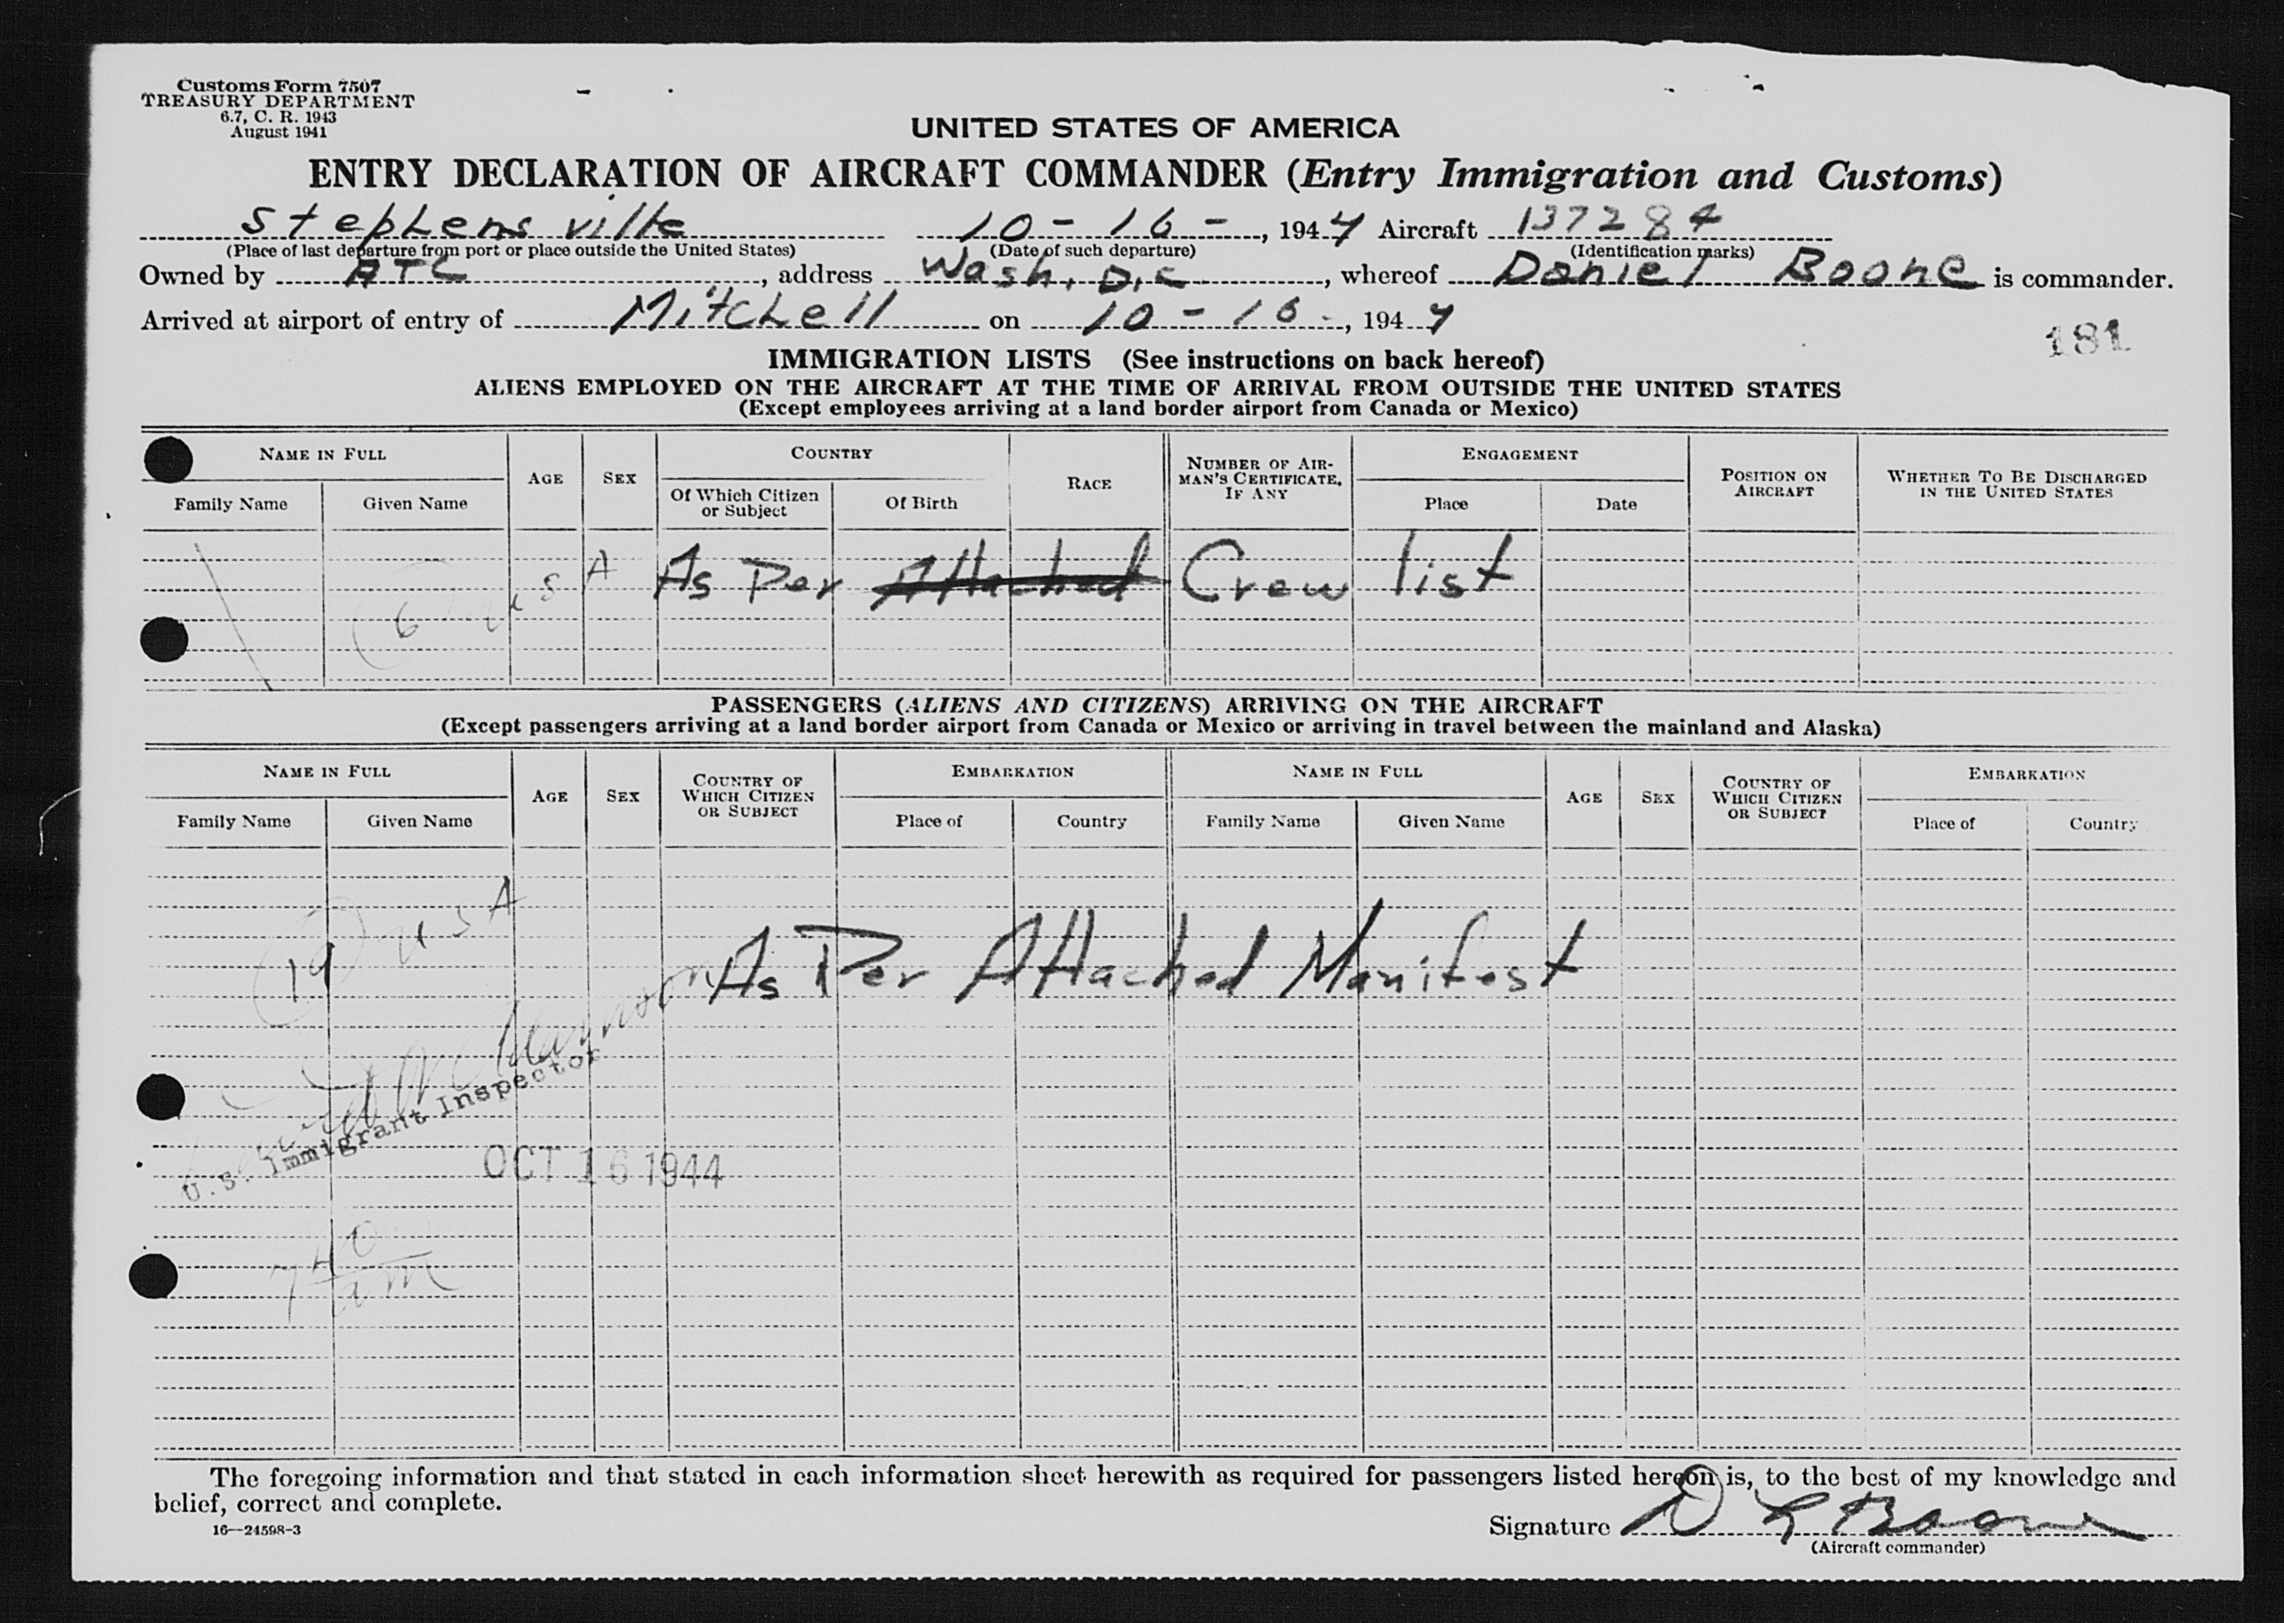 Customs Form 7507
TREASURY DEPARTMENT
6.7, C. R. 1943
August 1941
UNITED STATES OF AMERICA
ENTRY DECLARATION OF AIRCRAFT COMMANDER (Entry Immigration and Customs)
Stephensville 10-16-, 1944 Aircraft 137284
(Place of last departure from port or place outside the United States) (Date of such departure) (Identification marks)
Owned by ATC, address Wash. D.C., whereof Daniel Boone is commander.
Arrived at airport of entry of Mitchell on 10-16-, 1944
181
IMMIGRATION LISTS (See instructions on back hereof)
ALIENS EMPLOYED ON THE AIRCRAFT AT THE TIME OF ARRIVAL FROM OUTSIDE THE UNITED STATES
(Except employees arriving at a land border airport from Canada or Mexico)
NAME IN FULL AGE SEX COUNTRY RACE NUMBER OF AIRMAN'S CERTIFICATE, IF ANY ENGAGEMENT POSITION ON AIRCRAFT WHETHER TO BE DISCHARGED IN THE UNITED STATES
Family Name Given Name Of Which Citizen or Subject Of Birth Place Date
6 USA As Per Attached Crew list
PASSENGERS (ALIENS AND CITIZENS) ARRIVING ON THE AIRCRAFT
(Except passengers arriving at a land border airport from Canada or Mexico or arriving in travel between the mainland and Alaska)
NAME IN FULL AGE SEX COUNTRY OF WHICH CITIZEN OR SUBJECT EMBARKATION NAME IN FULL AGE SEX COUNTRY OF WHICH CITIZEN OR SUBJECT EMBARKATION
Family Name Given Name Place of Country Family Name Given Name Place of Country
19 USA
As Per Attached Manifest
U.S. Immigrant Inspector
OCT 16 1944
7 40 am
The foregoing information and that stated in each information sheet herewith as required for passengers listed hereon is, to the best of my knowledge and
belief, correct and complete.
16—24598-3
Signature D L Boone
(Aircraft commander)